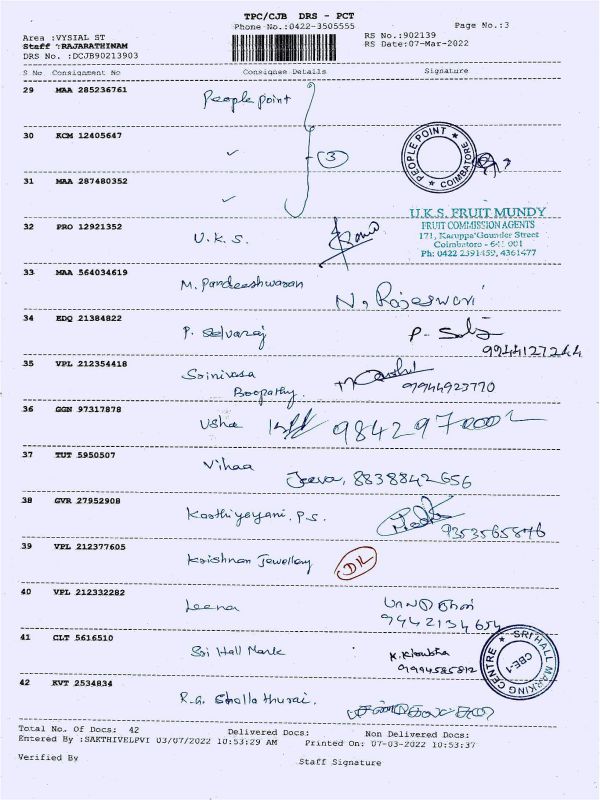 TPC/CJB DRS - PCT
Phone No.:0422-3505555
Page No.:3
Area :VYSIAL ST
Staff :RAJARATHINAM
DRS No. :DCJB90213903
RS No.:902139
RS Date:07-Mar-2022
S No Consignment No Consignee Details Signature
29 MAA 285236761 People point
30 KCM 12405647 ✓ 3
PEOPLE POINT ★ COIMBATORE ★
31 MAA 287480352 ✓
U.K.S. FRUIT MUNDY
FRUIT COMMISSION AGENTS
171, Karuppa Gounder Street
Coimbatore - 641 001
Ph: 0422 2391459, 4361477
32 PRO 12921352 U.K.S.
33 MAA 564034619 M. Pandeeshwaran N. Rajeswari
34 EDQ 21384822 P. Selvaraj P. Selvj
9944127244
35 VPL 212354418 Srinivasa
Boopathy. 9944923770
36 GGN 97317878 Usha
37 TUT 5950507 Vihaa
Jeeva, 8838842656
38 GVR 27952908 Karthiyayani. P.S.
9353565876
39 VPL 212377605 Krishnan Jewellery DIL
40 VPL 212332282 Leena
9442134654
41 CLT 5616510 Sri Hall Mark K. Kiruba
9994585812
SRI HALL MARKING CENTRE ★ CBE-1
42 KVT 2534834 R.G. Chella thurai.
Total No. Of Docs: 42 Delivered Docs: Non Delivered Docs:
Entered By :SAKTHIVELPVI 03/07/2022 10:53:29 AM Printed On: 07-03-2022 10:53:37
Verified By Staff Signature